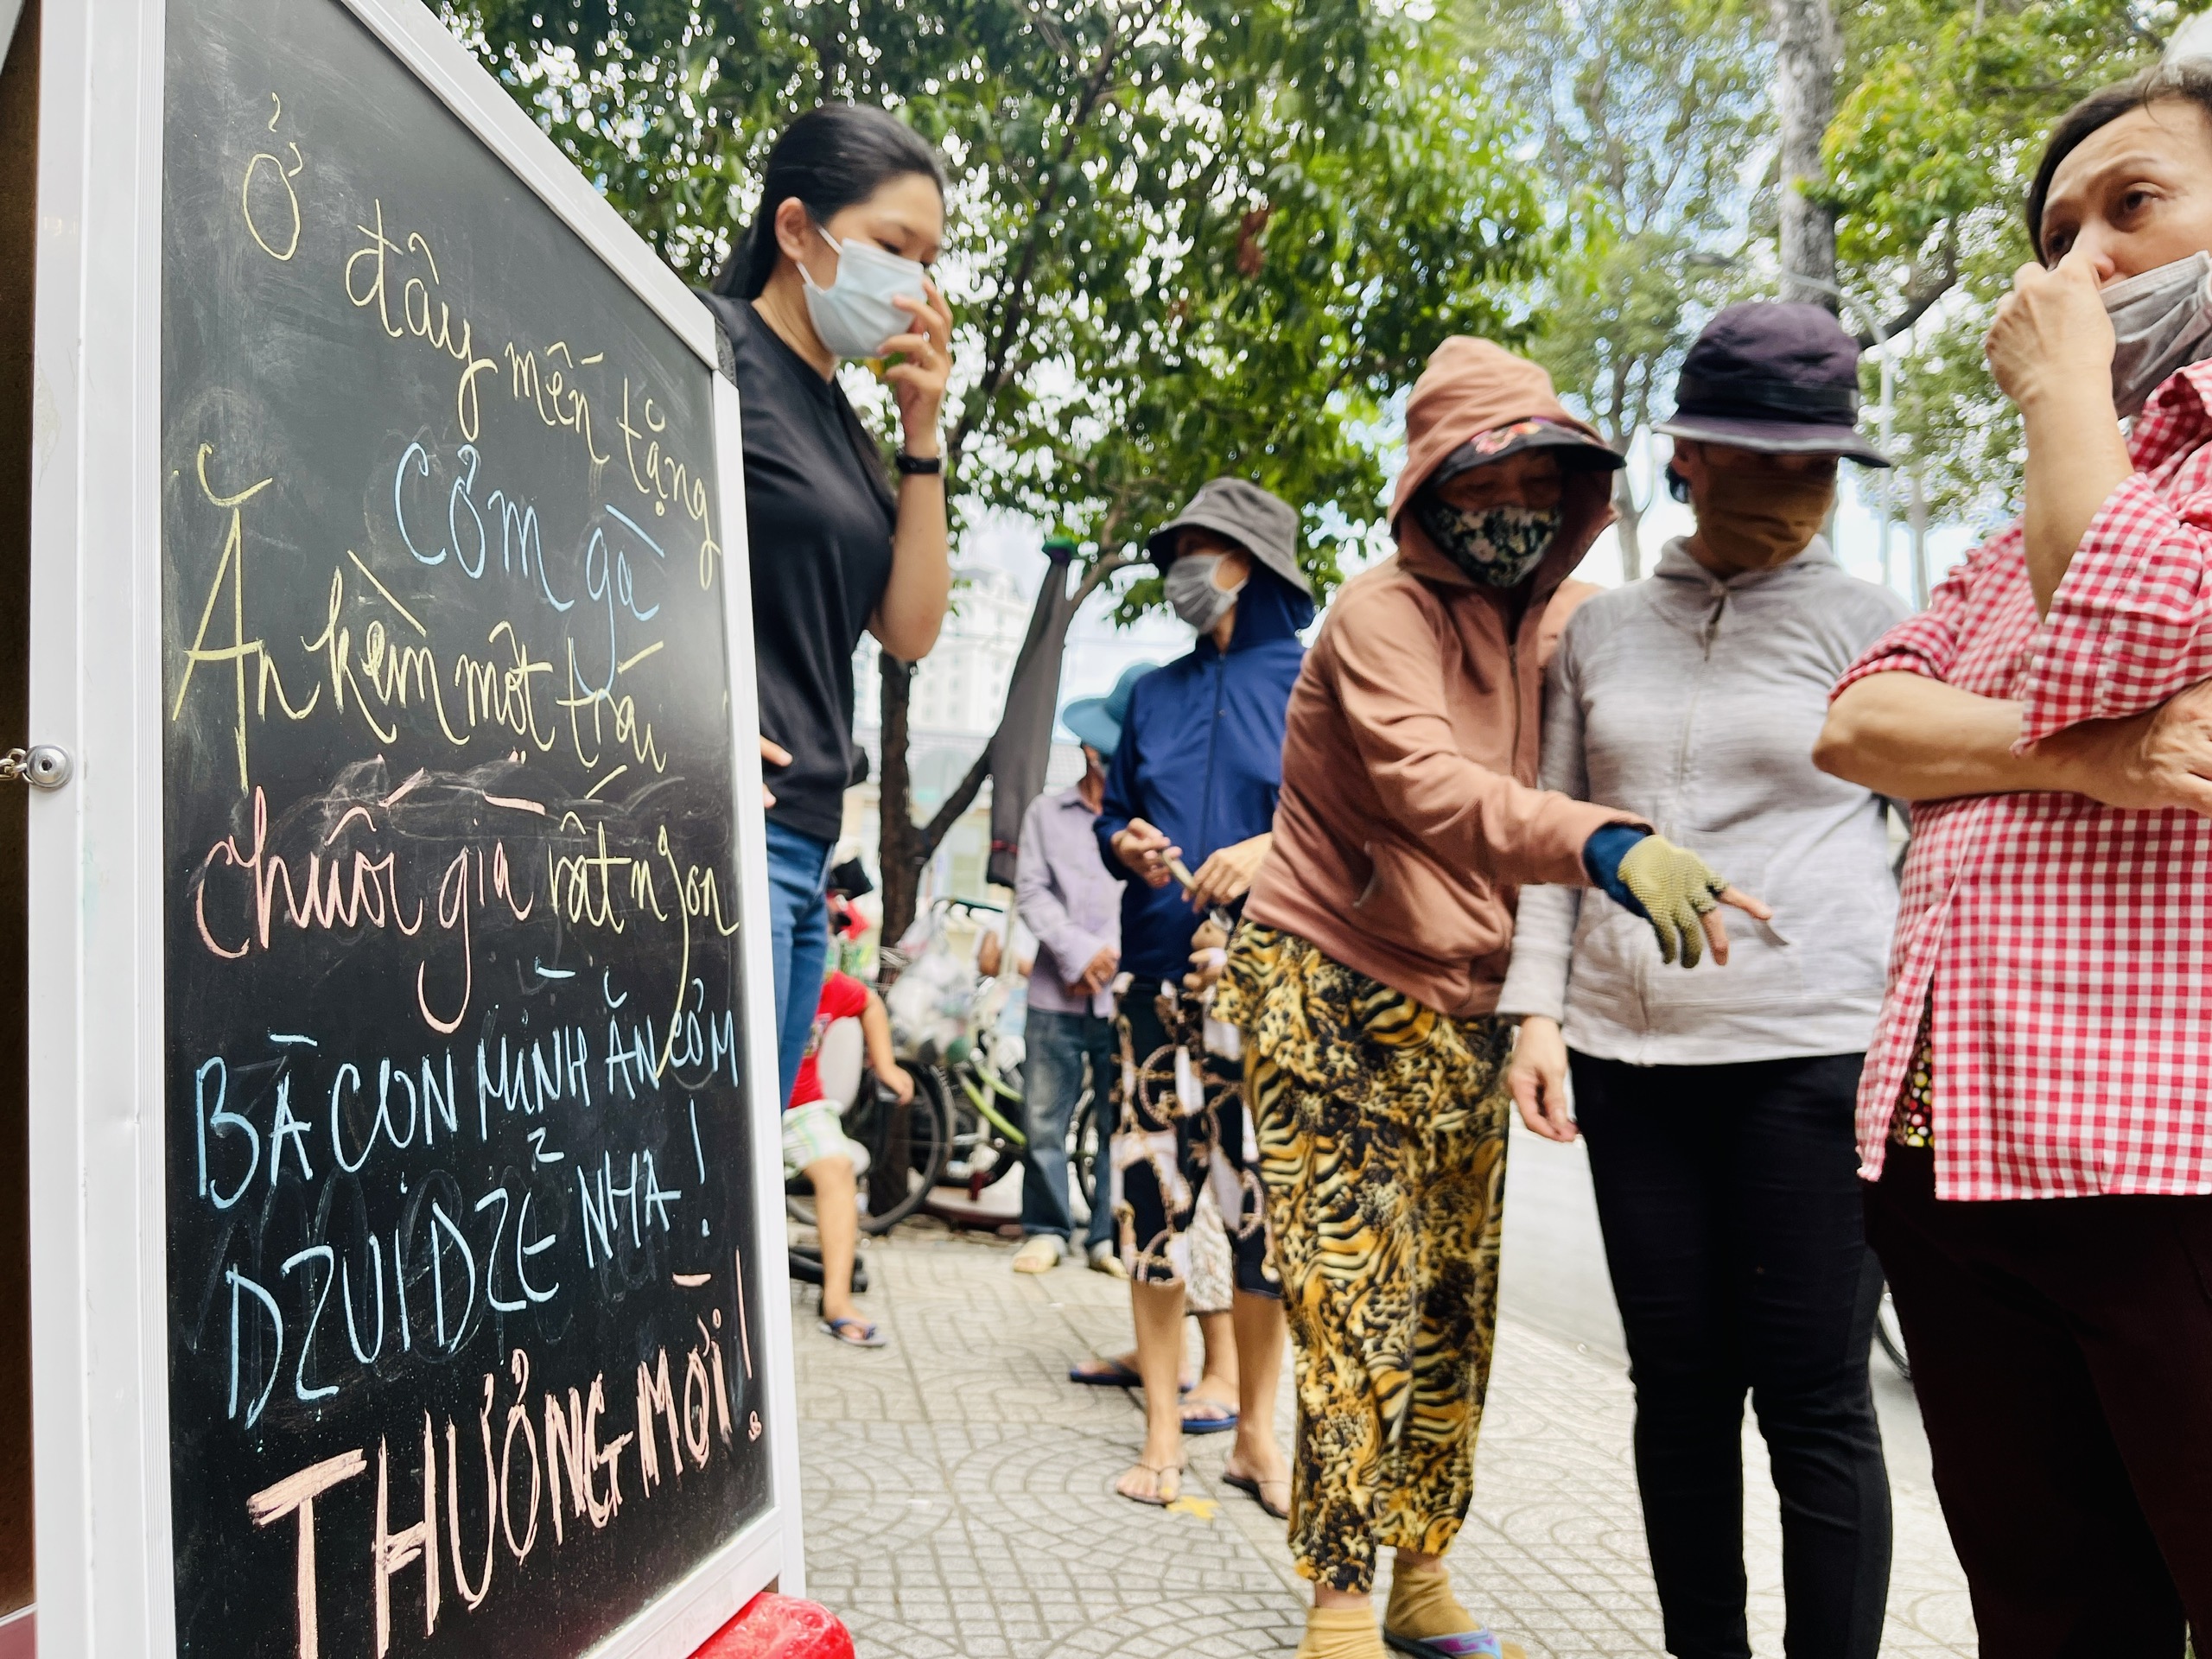 Ở đây mến tặng
Cơm gà
Ăn kèm một trái
chuối già rất ngon
BÀ CON MÌNH ĂN CƠM
DZUI DZẺ NHA!
THƯƠNG MỜI!